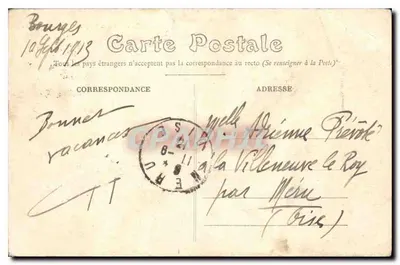 Bourges
10 Sept 1913
Carte Postale
Tous les pays étrangers n'acceptent pas la correspondance au recto (Se renseigner à la Poste)
CORRESPONDANCE
ADRESSE
Bonnes
vacances
Melle Adrienne Prévoté
à la Villeneuve le Roy
par Méru
(Oise)
MERU